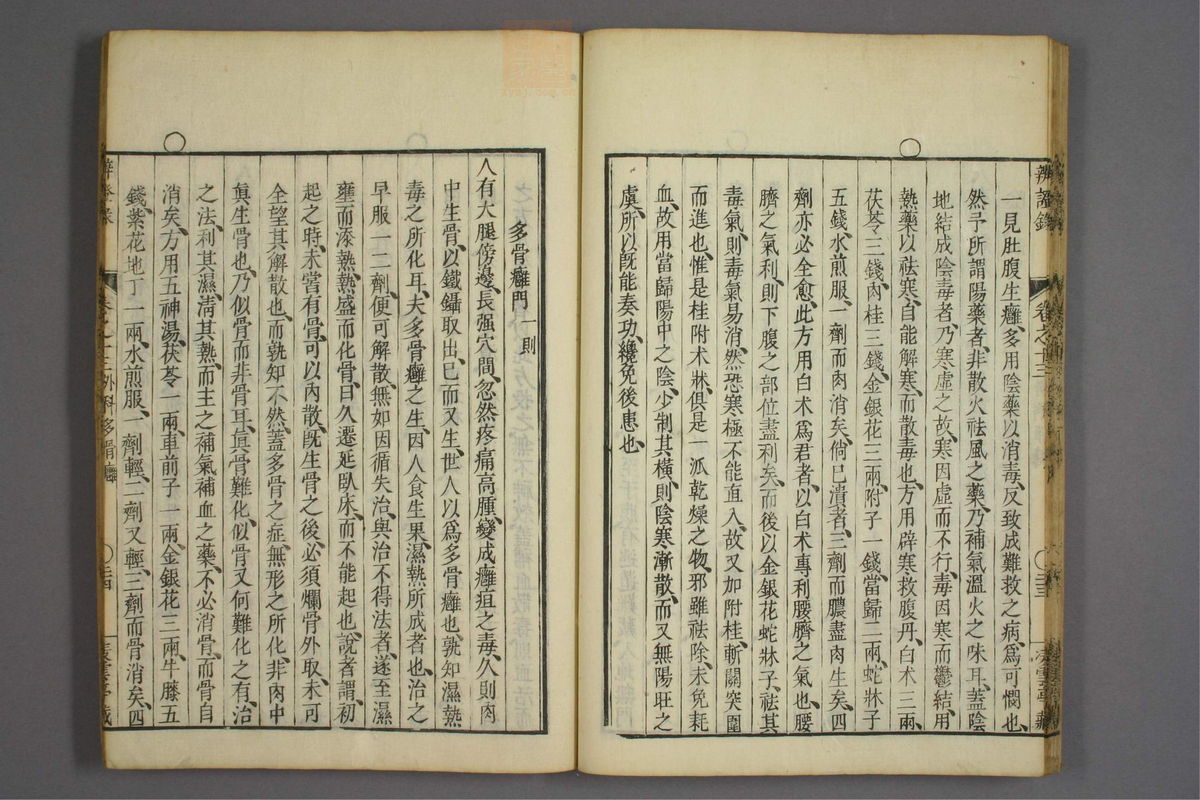 辨證錄 卷之十三
一見肚腹生癰、多用陰藥以消毒、反致成難救之病、爲可憫也、
然予所謂陽藥者、非散火祛風之藥、乃補氣溫火之味耳、蓋陰
地結成陰毒者、乃寒虛之故、寒因虛而不行、毒因寒而鬱結、用
熱藥以祛寒、自能解寒、而散毒也、方用辟寒救腹丹、白术三兩、
茯苓三錢、肉桂三錢、金銀花三兩、附子一錢、當歸二兩、蛇牀子
五錢、水煎服、一劑而肉消矣、倘已潰者、三劑而膿盡肉生矣、四
劑亦必全愈、此方用白术爲君者、以白术專利腰臍之氣也、腰
臍之氣利、則下腹之部位盡利矣、而後以金銀花蛇牀子、祛其
毒氣、則毒氣易消、然恐寒極不能直入、故又加附桂、斬關突圍
而進也、惟是桂附术牀、俱是一派乾燥之物、邪雖祛除、未免耗
血、故用當歸陽中之陰、少制其橫、則陰寒漸散、而又無陽旺之
虞、所以旣能奏功、纔免後患也、
多骨癰門一則
人有大腿傍邊、長强穴間、忽然疼痛高腫、變成癰疽之毒、久則肉
中生骨、以鐵鑷取出、已而又生、世人以爲多骨癰也、孰知濕熱
毒之所化耳、夫多骨癰之生、因人食生果、濕熱所成者也、治之
早服一二劑、便可解散、無如因循失治、與治不得法者、遂至濕
壅而添熱、熱盛而化骨、日久遷延臥床、而不能起也、說者謂、初
起之時、未嘗有骨、可以內散、旣生骨之後、必須爛骨外取、未可
全望其解散也、而孰知不然、蓋多骨之症、無形之所化、非肉中
眞生骨也、乃似骨而非骨耳、眞骨難化、似骨又何難化之有、治
之法、利其濕、淸其熱、而主之補氣補血之藥、不必消骨、而骨自
消矣、方用五神湯、茯苓一兩、車前子一兩、金銀花三兩、牛膝五
錢、紫花地丁一兩、水煎服、一劑輕、二劑又輕、三劑而骨消矣、四